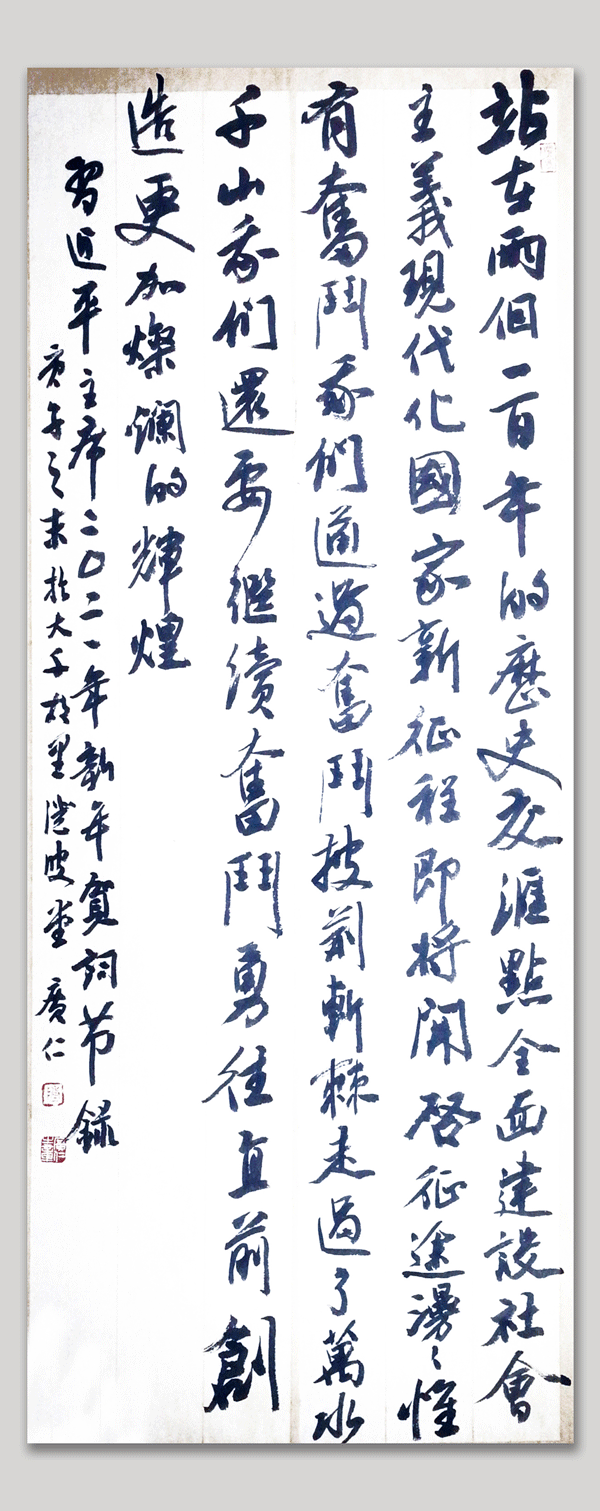 站在兩個一百年的歷史交滙點全面建設社會
主義現代化國家新征程即將開啓征途漫〻惟
有奮鬥我們通過奮鬥披荊斬棘走過了萬水
千山我們還要繼續奮鬥勇往直前創
造更加燦爛的輝煌
習近平主席二〇二一年新年賀詞节録
庚子之末於大千故里 廣仁